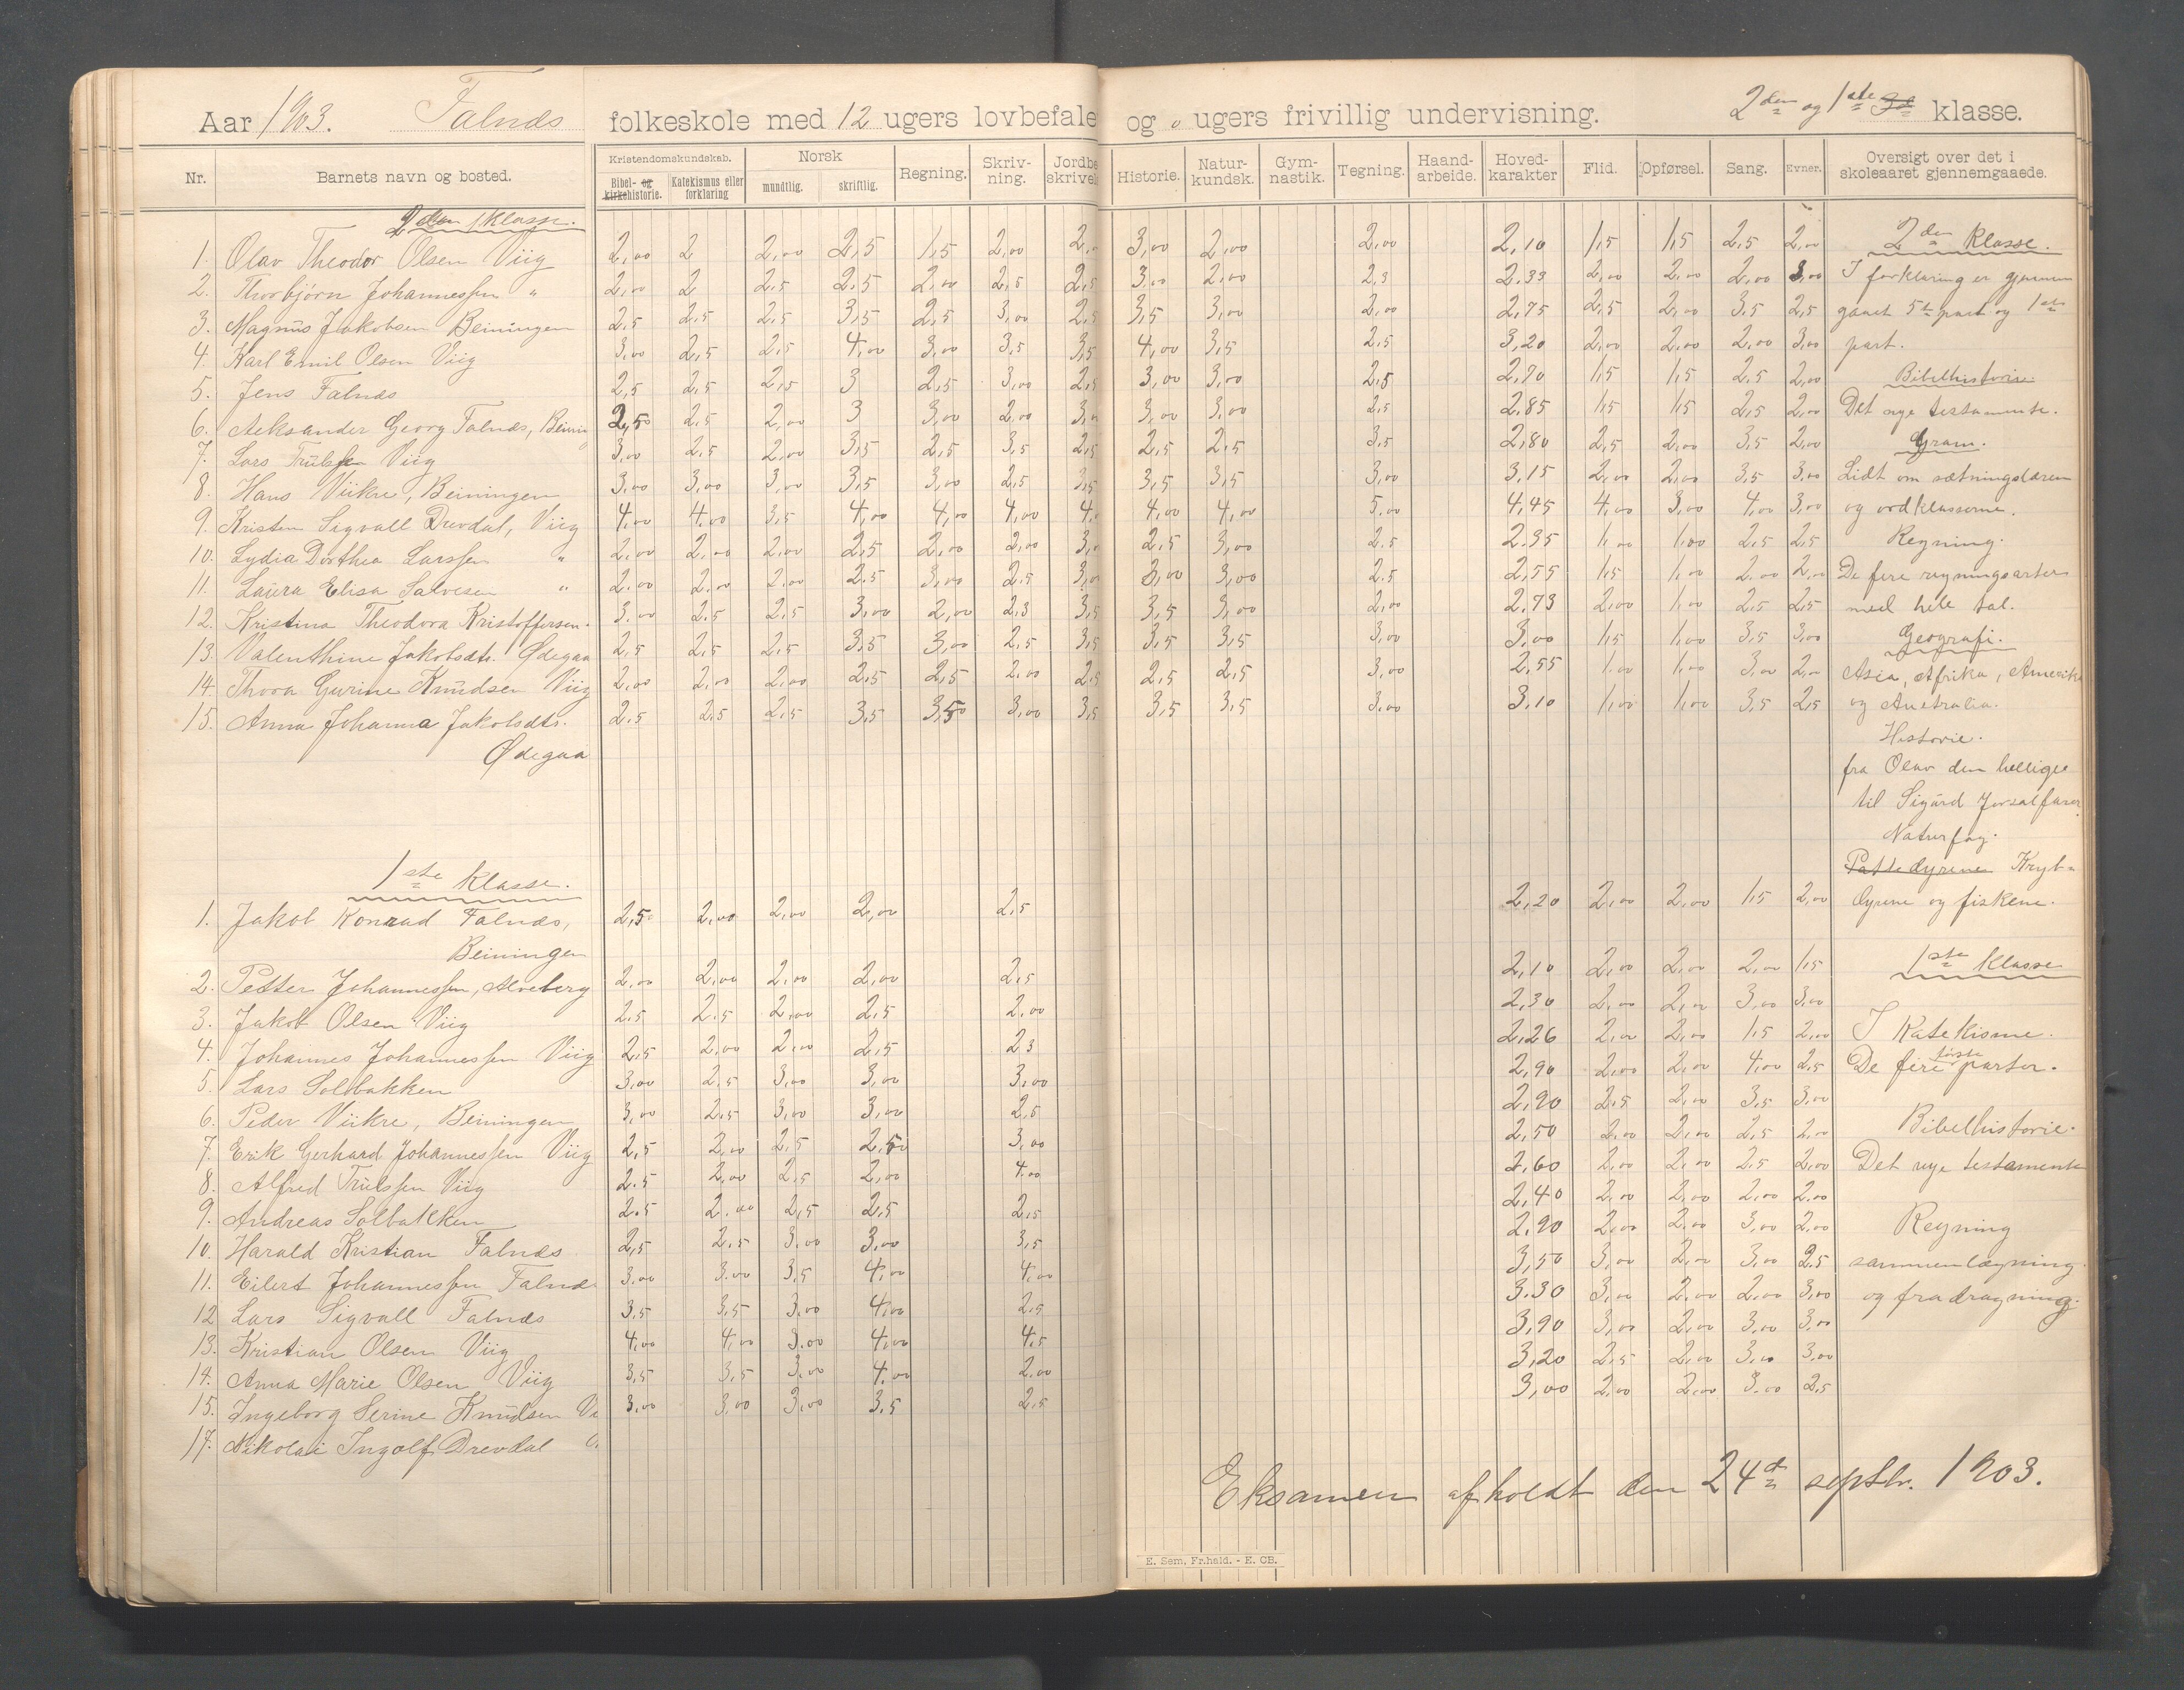 Aar 1903. Falnæs folkeskole med 12 ugers lovbefale og 0 ugers frivillig undervisning. 2den og 1ste 3d klasse.
Nr. Barnets navn og bosted. Kristendomskundskab. Bibel- og kirkehistorie. Katekismus eller forklaring Norsk mundtlig. skriftlig. Regning. Skriv-ning. Jordbe skrivels Historie. Natur-kundsk. Gym-nastik. Tegning. Haand-arbeide. Hoved-karakter Flid. Opførsel. Sang. Evner. Oversigt over det i skoleaaret gjennemgaaede.
2den klasse.
1. Olav Theodor Olsen Viig 2,00 2 2,00 2,5 1,5 2,00 2, 3,00 2,00 2,00 2,10 1,5 1,5 2,5 2,00 2den klasse.
2. Thorbjørn Johannessen " 2,00 2 2,5 2,5 2,00 2,5 2,5 3,00 2,00 2,3 2.33 2,00 2,00 2,00 3,00 I forklaring er gjennem
3. Magnus Jakobsen Beiningen 2,5 2,5 2,5 3,5 2,5 3,00 2,5 3,5 3,00 2,00 2,75 2,5 2,00 3,5 2,5 gaaet 5te part og 1ste
4. Karl Emil Olsen Viig 3,00 2,5 2,5 4,00 3,00 3,5 3,5 4,00 3,5 2,5 3,20 2,00 2,00 2,00 3,00 part.
5. Jens Falnæs 2,5 2,5 2,5 3 2,5 3,00 2,5 3,00 3,00 2,5 2,70 1,5 1,5 2,5 2,00 Bibelhistorie.
6. Aleksander Georg Falnæs, Beinin 2,5 2,5 2,00 3 3,00 2,00 3, 3,00 3,00 2,5 2.85 1,5 1,5 2,5 2,00 Det nye testamente.
7. Lars Trulssen Viig 3,00 2,5 2,00 3,5 2,5 3,5 2,5 2,5 2,5 3,5 2,80 2,5 2,00 3,5 2,00 Gram.
8. Hans Viikre, Beiningen 3,00 3,00 3,00 3,5 3,00 2,5 3,5 3,5 3,5 3,00 3,15 2,00 2,00 3,5 3,00 Lidt om sætningslæren
9. Kristen Sigvall Drevdal, Viig 4,00 4,00 3,5 4,00 4,00 4,00 4, 4,00 4,00 5,00 4,45 4,00 3,00 4,00 3,00 og ordklasserne.
10. Lydia Dorthea Larssen " 2,00 2,00 2,00 2,5 2,00 2,00 3, 2,5 3,00 2,5 2.35 1,00 1,00 2,5 2,5 Regning.
11. Laura Elisa Salvesen " 2,00 2,00 2,00 2,5 3,00 2,5 3,0 3,00 3,00 2,5 2,55 1,5 1,00 2,00 2,00 De fire regningsarter
12. Kristina Theodora Kristoffersen. 3,00 2,5 2,5 3,00 2,00 2,3 3,5 3,5 3,00 2,00 2,73 2,00 1,00 2,5 2,5 med hele tal.
13. Valenthine Jakobsdtr. Ødegaa 2,5 2,5 2,5 3,5 3,00 2,5 3,5 3,5 3,5 3,00 3,00 1,5 1,00 3,5 3,00 Geografi.
14. Thora Gurine Knudsen Viig 2,00 2,00 2,00 2,5 2,5 2,00 2,5 2,5 2,5 3,00 2,55 1,00 1,00 3,00 2,00 Asia, Afrika, Amerika
15. Anna Johanna Jakobsdtr. 2,5 2,5 2,5 3,5 3,5 3,00 3,5 3,5 3,5 3,00 3,10 1,00 1,00 3,5 2,5 og Australia.
Ødegaa Historie.
fra Olav den hellige
til Sigurd Jorsalfarer
Naturfag.
Pattedyrene Kryb-
1ste klasse.
1. Jakob Konrad Falnæs, 2,5 2,00 2,00 2,00 2,5 2,20 2,00 2,00 1,5 2,00 dyrene og fiskene.
Beiningen
2. Petter Johannessen, Alveberg 2,00 2,00 2,00 2,00 2,5 2,10 2,00 2,00 2,00 1,5 1ste klasse
3. Jakob Olsen Viig 2,5 2,5 2,00 2,5 2,00 2,30 2,00 2,00 3,00 3,00
4. Johannes Johannessen Viig 2,5 2,00 2,00 2,5 2 3 2,26 2,00 2,00 1,5 2,00 I Katekisme.
5. Lars Solbakken 3,00 2,5 3,00 3,00 3,00 2,90 2,00 2,00 4,00 2,5 De fire første parter.
6. Peder Viikre, Beiningen 3,00 2,5 3,00 3,00 2,5 2,90 2,5 2,00 3,5 3,00
7. Erik Gerhard Johannessen Viig 2,5 2,00 2,5 2,5 3,00 2,50 2,00 2,00 2,5 2,00 Bibelhistorie.
8. Alfred Trulssen Viig 2,5 2,00 2,5 2,00 4,00 2,60 2,00 2,00 2,5 2,00 Det nye testamente
9. Andreas Solbakken 2,5 2,00 2,5 2,5 2,5 2,40 2,00 2,00 2,00 2,00
10. Harald Kristian Falnæs 2,5 2,5 3,00 3,00 3,5 2.90 2,00 2,00 3,00 2,00 Regning
11. Eilert Johannessen Falnæs 3,00 3,00 3,5 4,00 4,00 3,50 3,00 2,00 3,00 2,5 sammenlægning.
12 Lars Sigvall Falnæs 3,5 3,5 3,00 4,00 2,5 3.30 3,00 2,00 2,00 3,00 og fradragning.
13. Kristian Olsen Viig 4,00 4,00 3,00 4,00 4,5 3,90 3,00 2,00 3,00 3,00
14. Anna Marie Olsen Viig 3,5 3,5 3,00 4,00 2,00 3,20 2,5 2,00 3,00 3,00
15. Ingeborg Serine Knudsen Vi 3,00 3,00 3,00 3,5 2,5 3,00 2,00 2,00 3,00 2,5
17. Nikolai Ingolf Drevdal
Eksamen afholdt den 24d septbr. 1903.
E. Sem, Fr.hald. - E. CB.